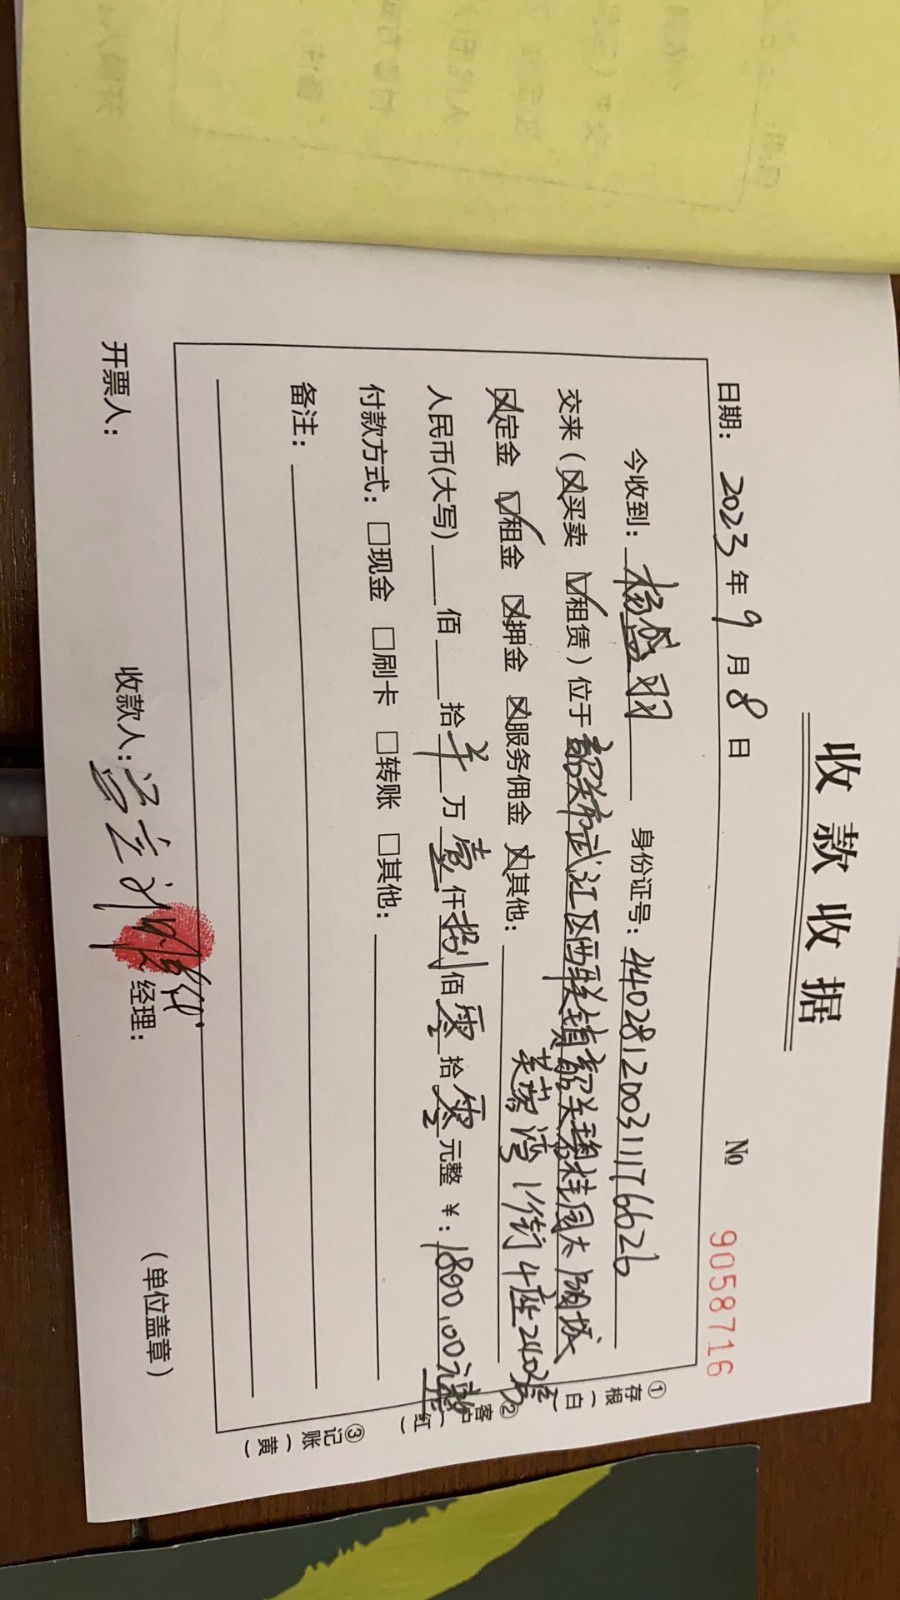 收款收据
№ 9058716
日期：2023年9月8日
今收到：杨盛羽 身份证号：440281200311176626
交来（☒买卖 ☑租赁）位于韶关市武江区西联镇韶关碧桂园太阳城
芙蓉湾1街4座2402房
☒定金 ☑租金 ☒押金 ☒服务佣金 ☒其他：
人民币(大写) 佰 拾 万 壹仟捌佰零拾零元整 ￥：1800.00元整
付款方式：□现金 □刷卡 □转账 □其他：
备注：
开票人： 收款人： 经理： （单位盖章）
①存根（白）
②客户（红）
③记账（黄）